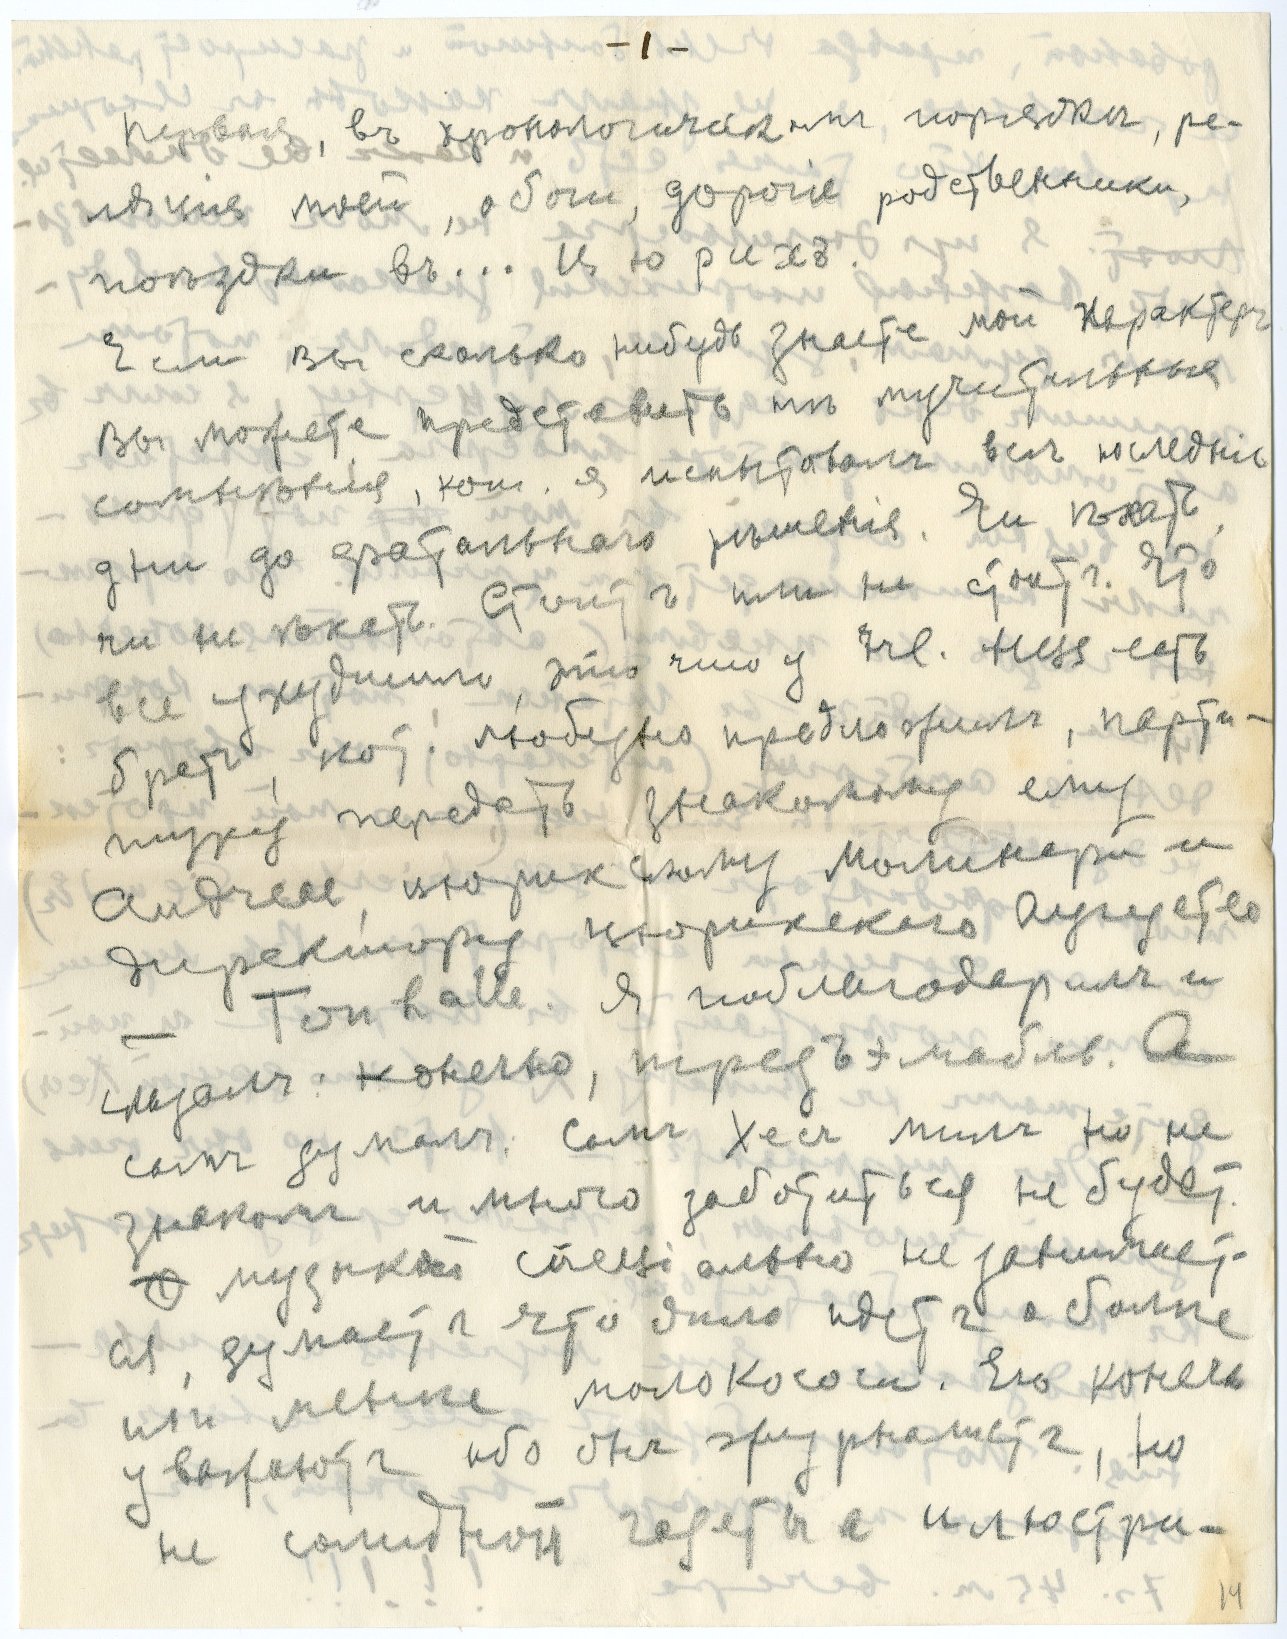 - 1 -
Первая, въ хронологическомъ порядкѣ, ре-
ляція моей, о боги, дорогіе родственники,
поѣздки въ... Цюрихъ.
Если вы сколько нибудь знаете мой характеръ
вы можете представить мнѣ мучительныя
сомнѣнія, кот. я испытовалъ всѣ последніе
дни до фатальнаго рѣшенія. Чи ѣхать,
чи не ѣхать. Стоитъ или не стоитъ. Что
все ухудшило, это что у Frl. Hess есть
братъ, кот. любезно предложилъ, парти-
туру передать знакомому ему
Andreae, цюрихскому Молинари и
директору цюрихскаго Аугустео
— Tonhalle. Я поблагодарилъ и
сказалъ: конечно, трезъэмабль. А
самъ думалъ: Самъ Хесъ милъ но не
знакомъ и много заботиться не будет.
музыкой спеціально не занимает-
ся, думаетъ что дѣло идетъ о болѣе
или менѣе молокососѣ. Его конечн
уважаютъ ибо онъ журналистъ, но
не солидной газеты а иллюстри-
14